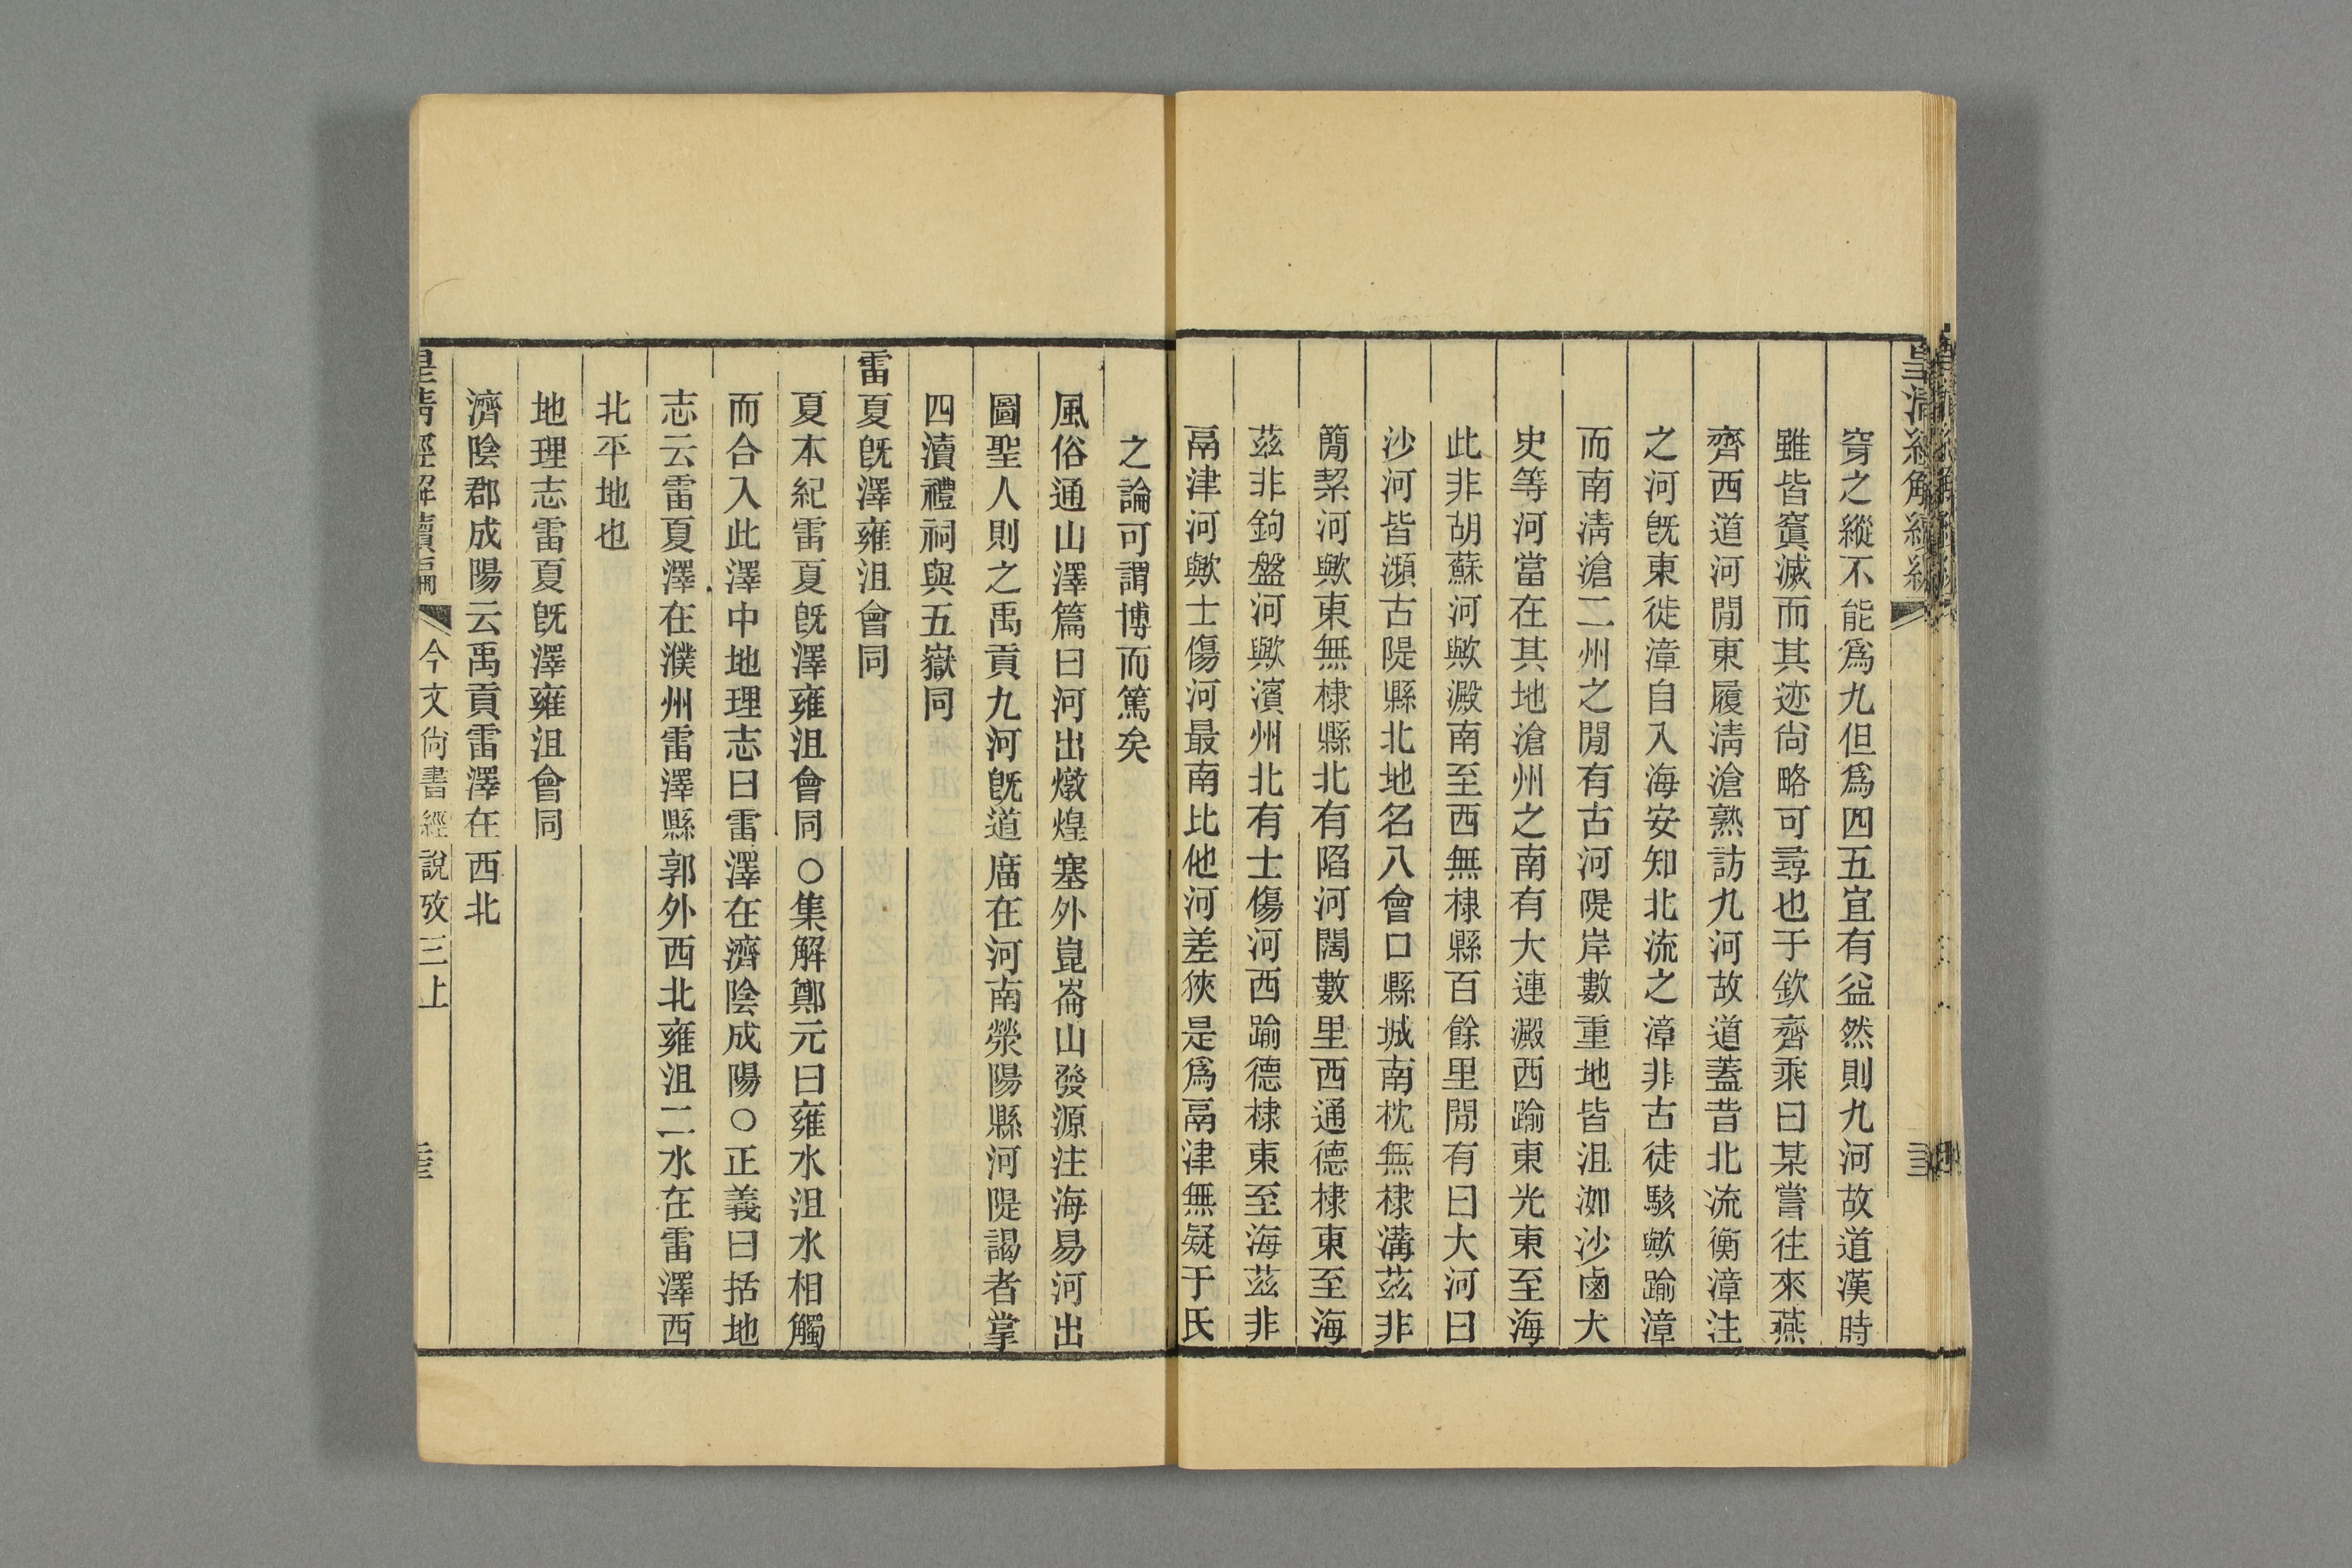 穿之縱不能爲九但爲四五宜有益然則九河故道漢時
雖皆窴滅而其迹尙略可尋也于欽齊乘曰某嘗往來燕
齊西道河閒東履淸滄熟訪九河故道蓋昔北流衡漳注
之河旣東徙漳自入海安知北流之漳非古徒駭歟踰漳
而南淸滄二州之閒有古河隄岸數重地皆沮洳沙鹵大
史等河當在其地滄州之南有大連澱西踰東光東至海
此非胡蘇河歟澱南至西無棣縣百餘里閒有曰大河曰
沙河皆瀕古隄縣北地名八會口縣城南枕無棣溝茲非
簡絜河歟東無棣縣北有陷河闊數里西通德棣東至海
茲非鉤盤河歟濱州北有士傷河西踰德棣東至海茲非
鬲津河歟士傷河最南比他河差狹是爲鬲津無疑于氏
之論可謂博而篤矣
風俗通山澤篇曰河出燉煌塞外崑崙山發源注海易河出
圖聖人則之禹貢九河旣道廣在河南滎陽縣河隄謁者掌
四瀆禮祠與五嶽同
雷夏旣澤雍沮會同
夏本紀雷夏旣澤雍沮會同○集解鄭元曰雍水沮水相觸
而合入此澤中地理志曰雷澤在濟陰成陽○正義曰括地
志云雷夏澤在濮州雷澤縣郭外西北雍沮二水在雷澤西
北平地也
地理志雷夏旣澤雍沮會同
濟陰郡成陽云禹貢雷澤在西北
皇清經解續編 今文尙書經說攷三上